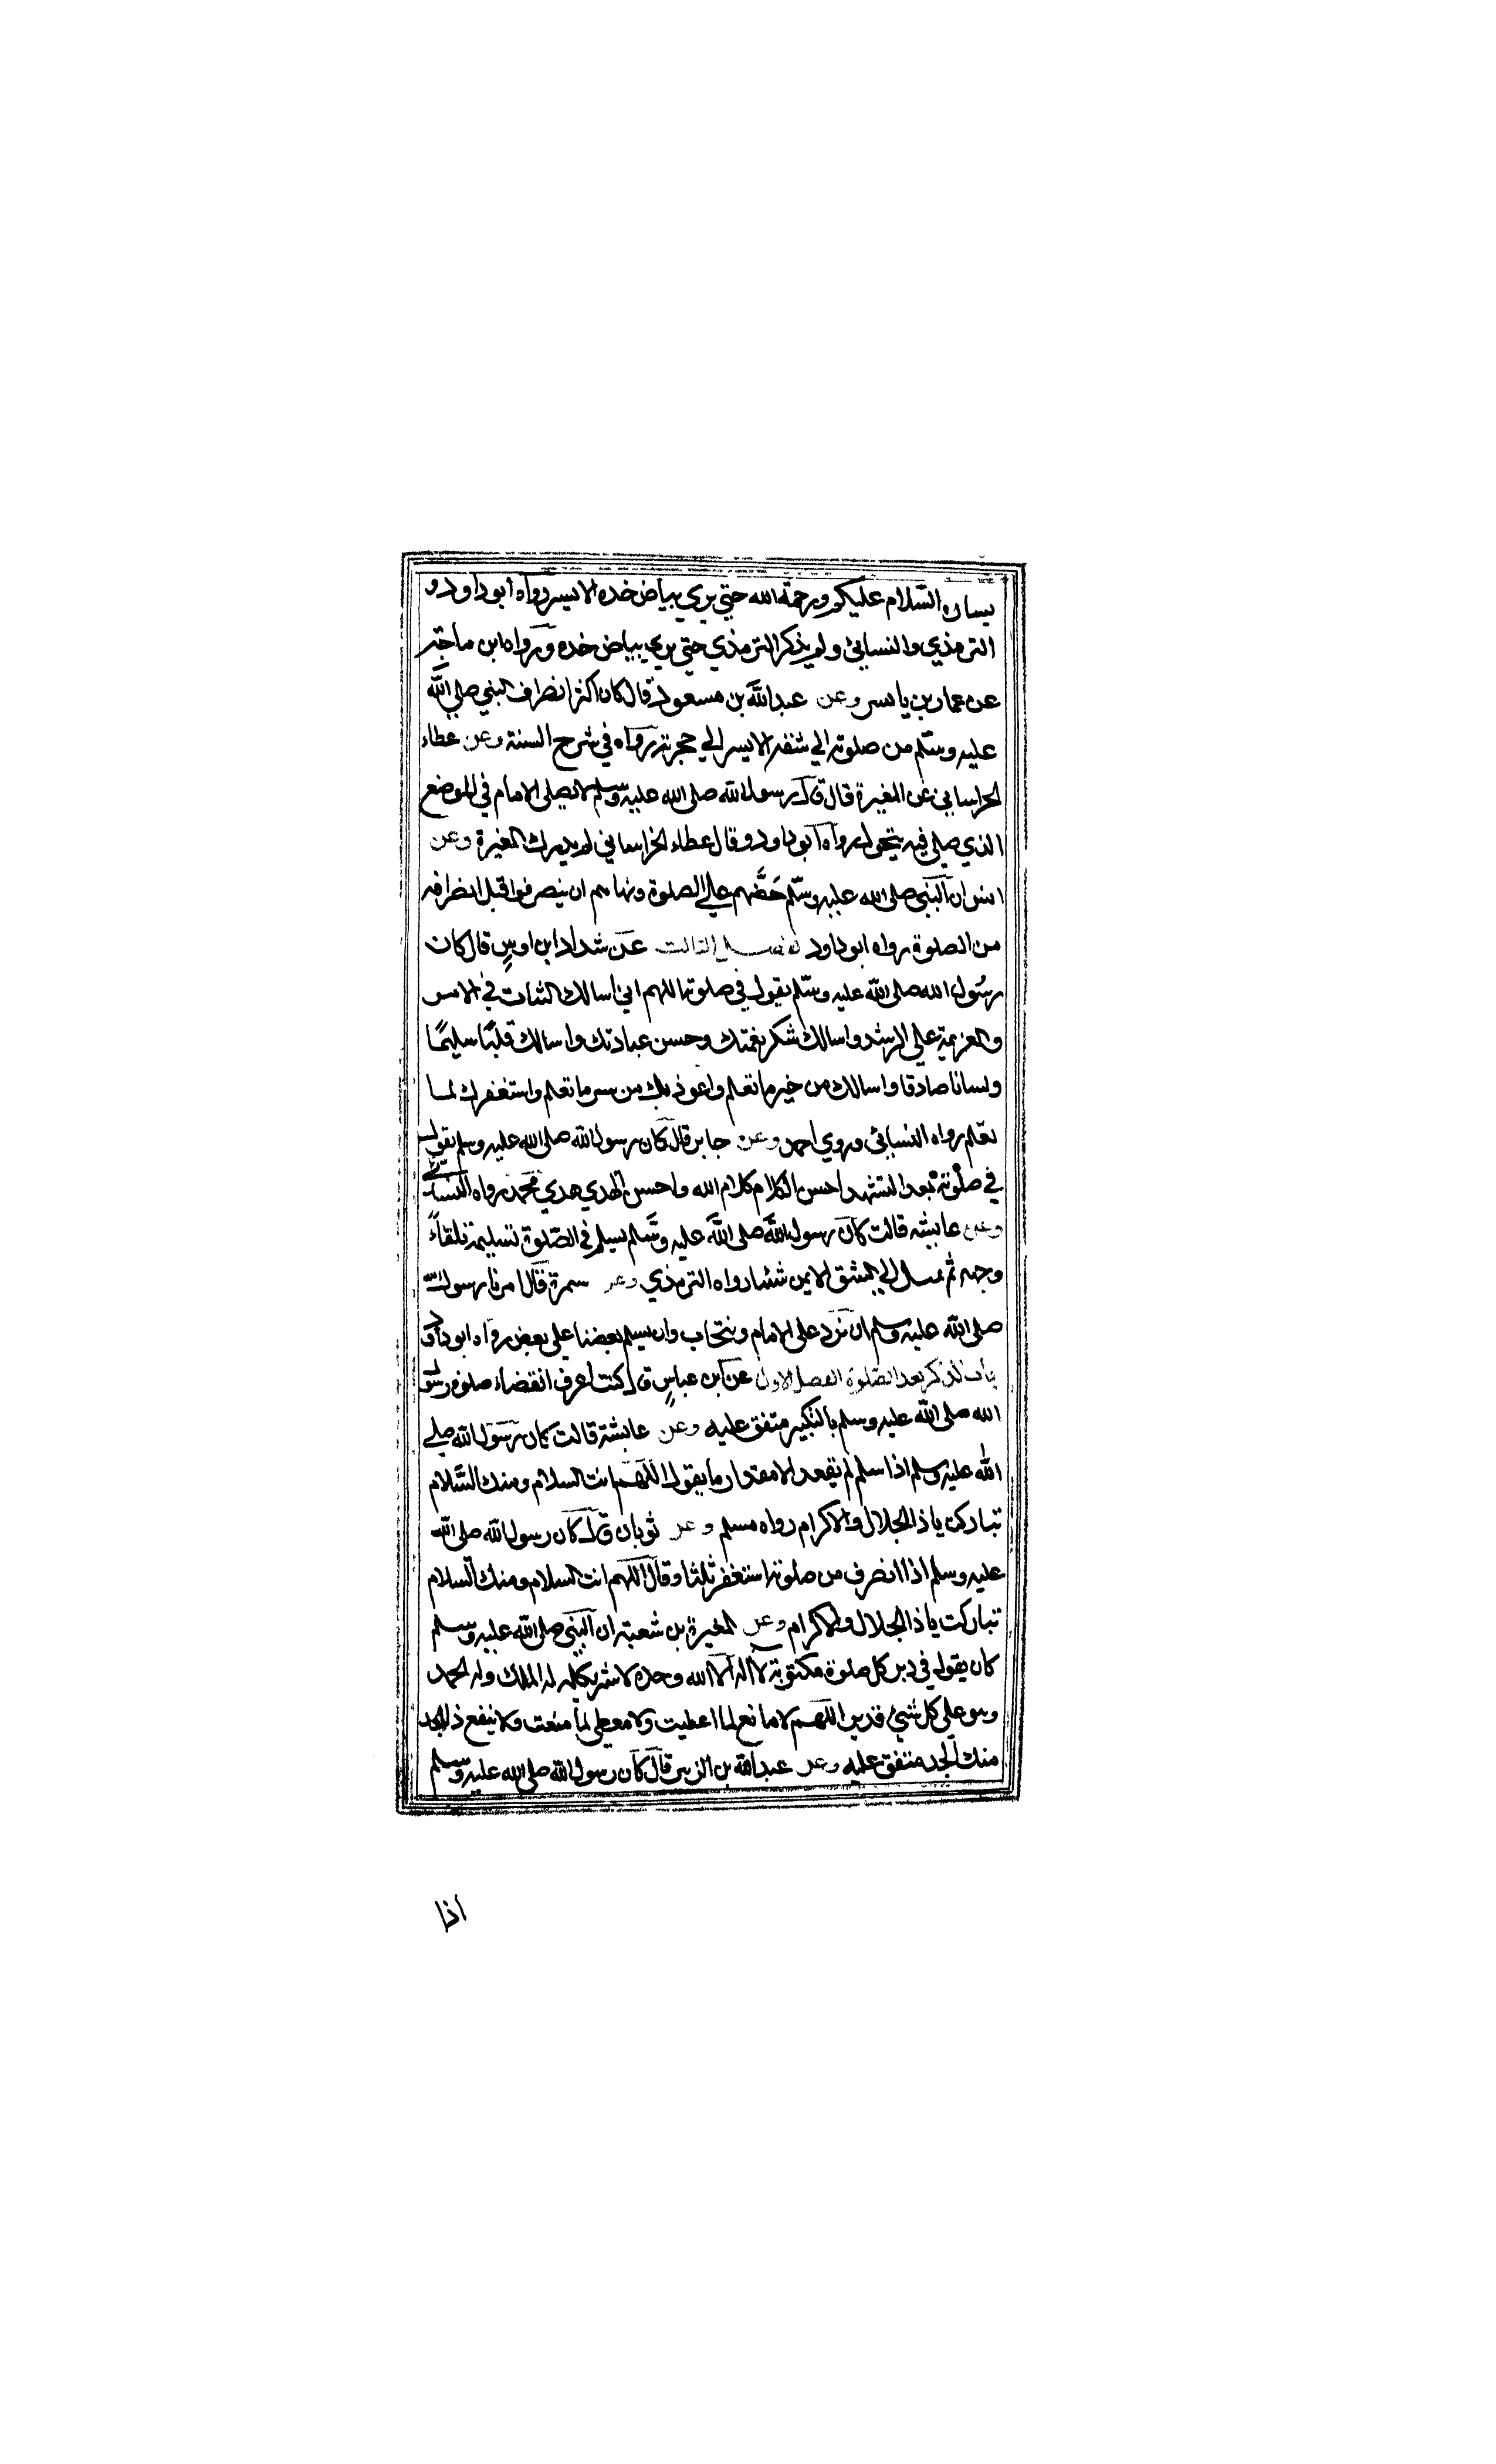 يساره السّلام عليكم ورحمة الله حتي يري بياض خده الايسر رواه ابو داود و
الترمذي والنسائي ولم يذكر الترمذي حتي يري بياض خده ورواه ابن ماجة
عن عمار بن ياسر وعن عبد الله بن مسعود قال كان اكثر انصراف النبي صلي الله
عليه وسلم من صلوته الي شقه الايسر الي حجرته رواه في شرح السنة وعن عطاء
الخراساني عن المغيرة قال قال رسول الله صلي الله عليه وسلم لا يصلي الامام في الموضع
الذي صلي فيه يتحول رواه ابو داود وقال عطاء الخراساني لم يدرك المغيرة وعن
انس ان النبي صلي الله عليه وسلم حَضَّهم علي الصلوة ونهاهم ان ينصرفوا قبل انصرافه
من الصلوة رواه ابو داود الفصل الثالث عن شداد ابن اوسٍ قال كان
رسُول الله صلي الله عليه وسلم يقول في صلوته اللهم اني اسالك الثبات في الامر
والعزيمة علي الرشد واسالك شكر نعمتك وحسن عبادتك واسالك قلبًا سليمًا
ولسانا صادقا واسالك من خير ما تعلم واعوذ بك من شر ما تعلم واستغفرك لما
تعلم رواه النسائي وروي احمد وعن جابر قال كان رسول الله صلي الله عليه وسلم يقول
في صلوته بعد التشهد احسن الكلام كلام الله واحسن الهدي هدي محمد رواه النسائي
وعن عايشه قالت كان رسول الله صلي الله عليه وسلم يسلم في الصّلوة تسليمة تلقاءً
وجهه ثم يميل الي الشق الايمن شيئا رواه الترمذي وعن سمرة قال امرنا رسول الله
صلي الله عليه وسلم ان نرد علي الامام ونتحاب وان يسلم بعضنا علي بعض رواه ابو داود
باب الذكر بعد الصّلوة الفصل الاول عن ابن عباسٍ قال كنت اعرف انقضاء صلوة رسول
الله صلي الله عليه وسلم بالتكبير متفق عليه وعن عايشة قالت كان رسول الله صلي
الله عليه وسلم اذا سلم لم يقعد الا مقدار ما يقول اللهم انت السلام ومنك السَّلام
تباركت يا ذا الجلال والاكرام رواه مسلم وعن ثوبان قال كان رسول الله صلي الله
عليه وسلم اذا انصرف من صلوته استغفر ثلثا وقال اللهم انت السلام ومنك السلام
تباركت يا ذا الجلال والاكرام وعن المغيرة بن شعبة ان النبي صلي الله عليه وسلم
كان يقول في دبر كل صلوة مكتوبة لا اله الا الله وحده لا شريك له له الملك وله الحمد
وهو علي كل شيئ قدير اللهم لا مانع لما اعطيت ولا معطي لما منعت ولا ينفع ذا الجد
منك الجد متفق عليه وعن عبد الله بن الزبير قال كان رسول الله صلي الله عليه وسلم
اذا